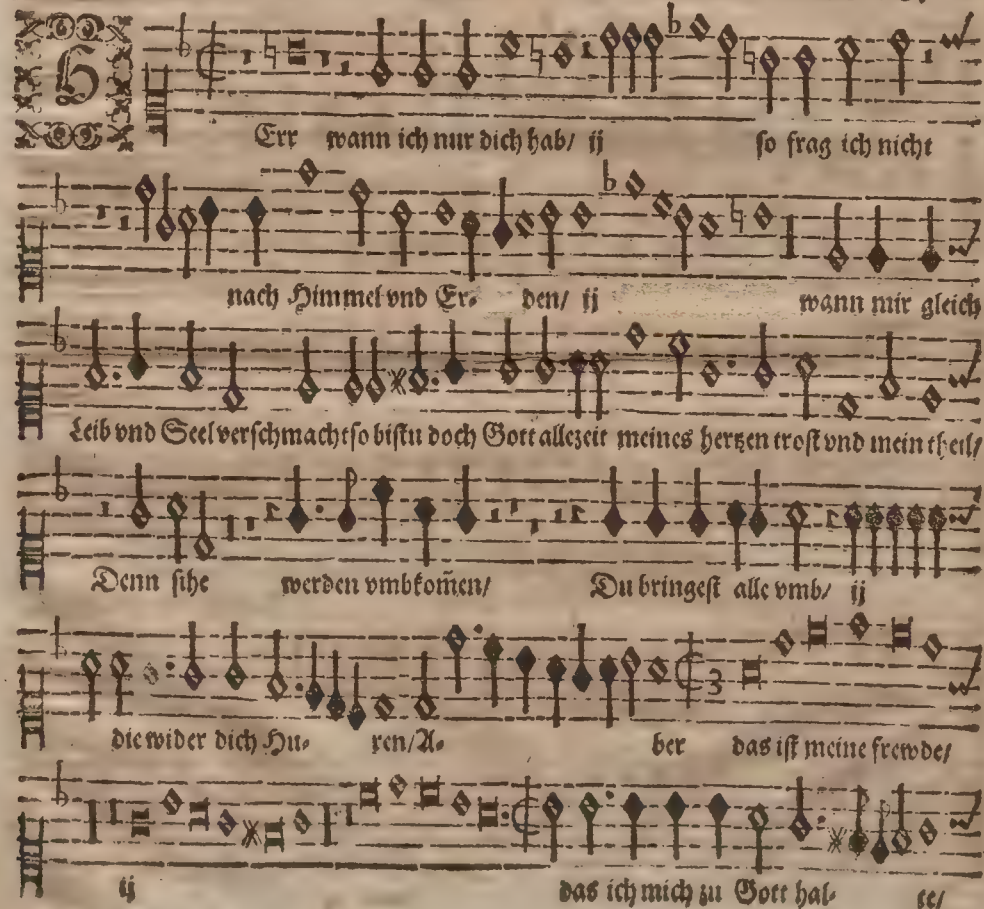 HErr wann ich nur dich hab/ ij so frag ich nicht
nach Himmel vnd Er- den/ ij wann mir gleich
Leib vnd Seel verschmacht so bistu doch Gott allezeit meines hertzen trost vnd mein theil/
Denn sihe werden vmbkom̃en/ Du bringest alle vmb/ ij
die wider dich Hu- ren/ A- ber das ist meine frewde/
3
ij das ich mich zu Gott hal- te/